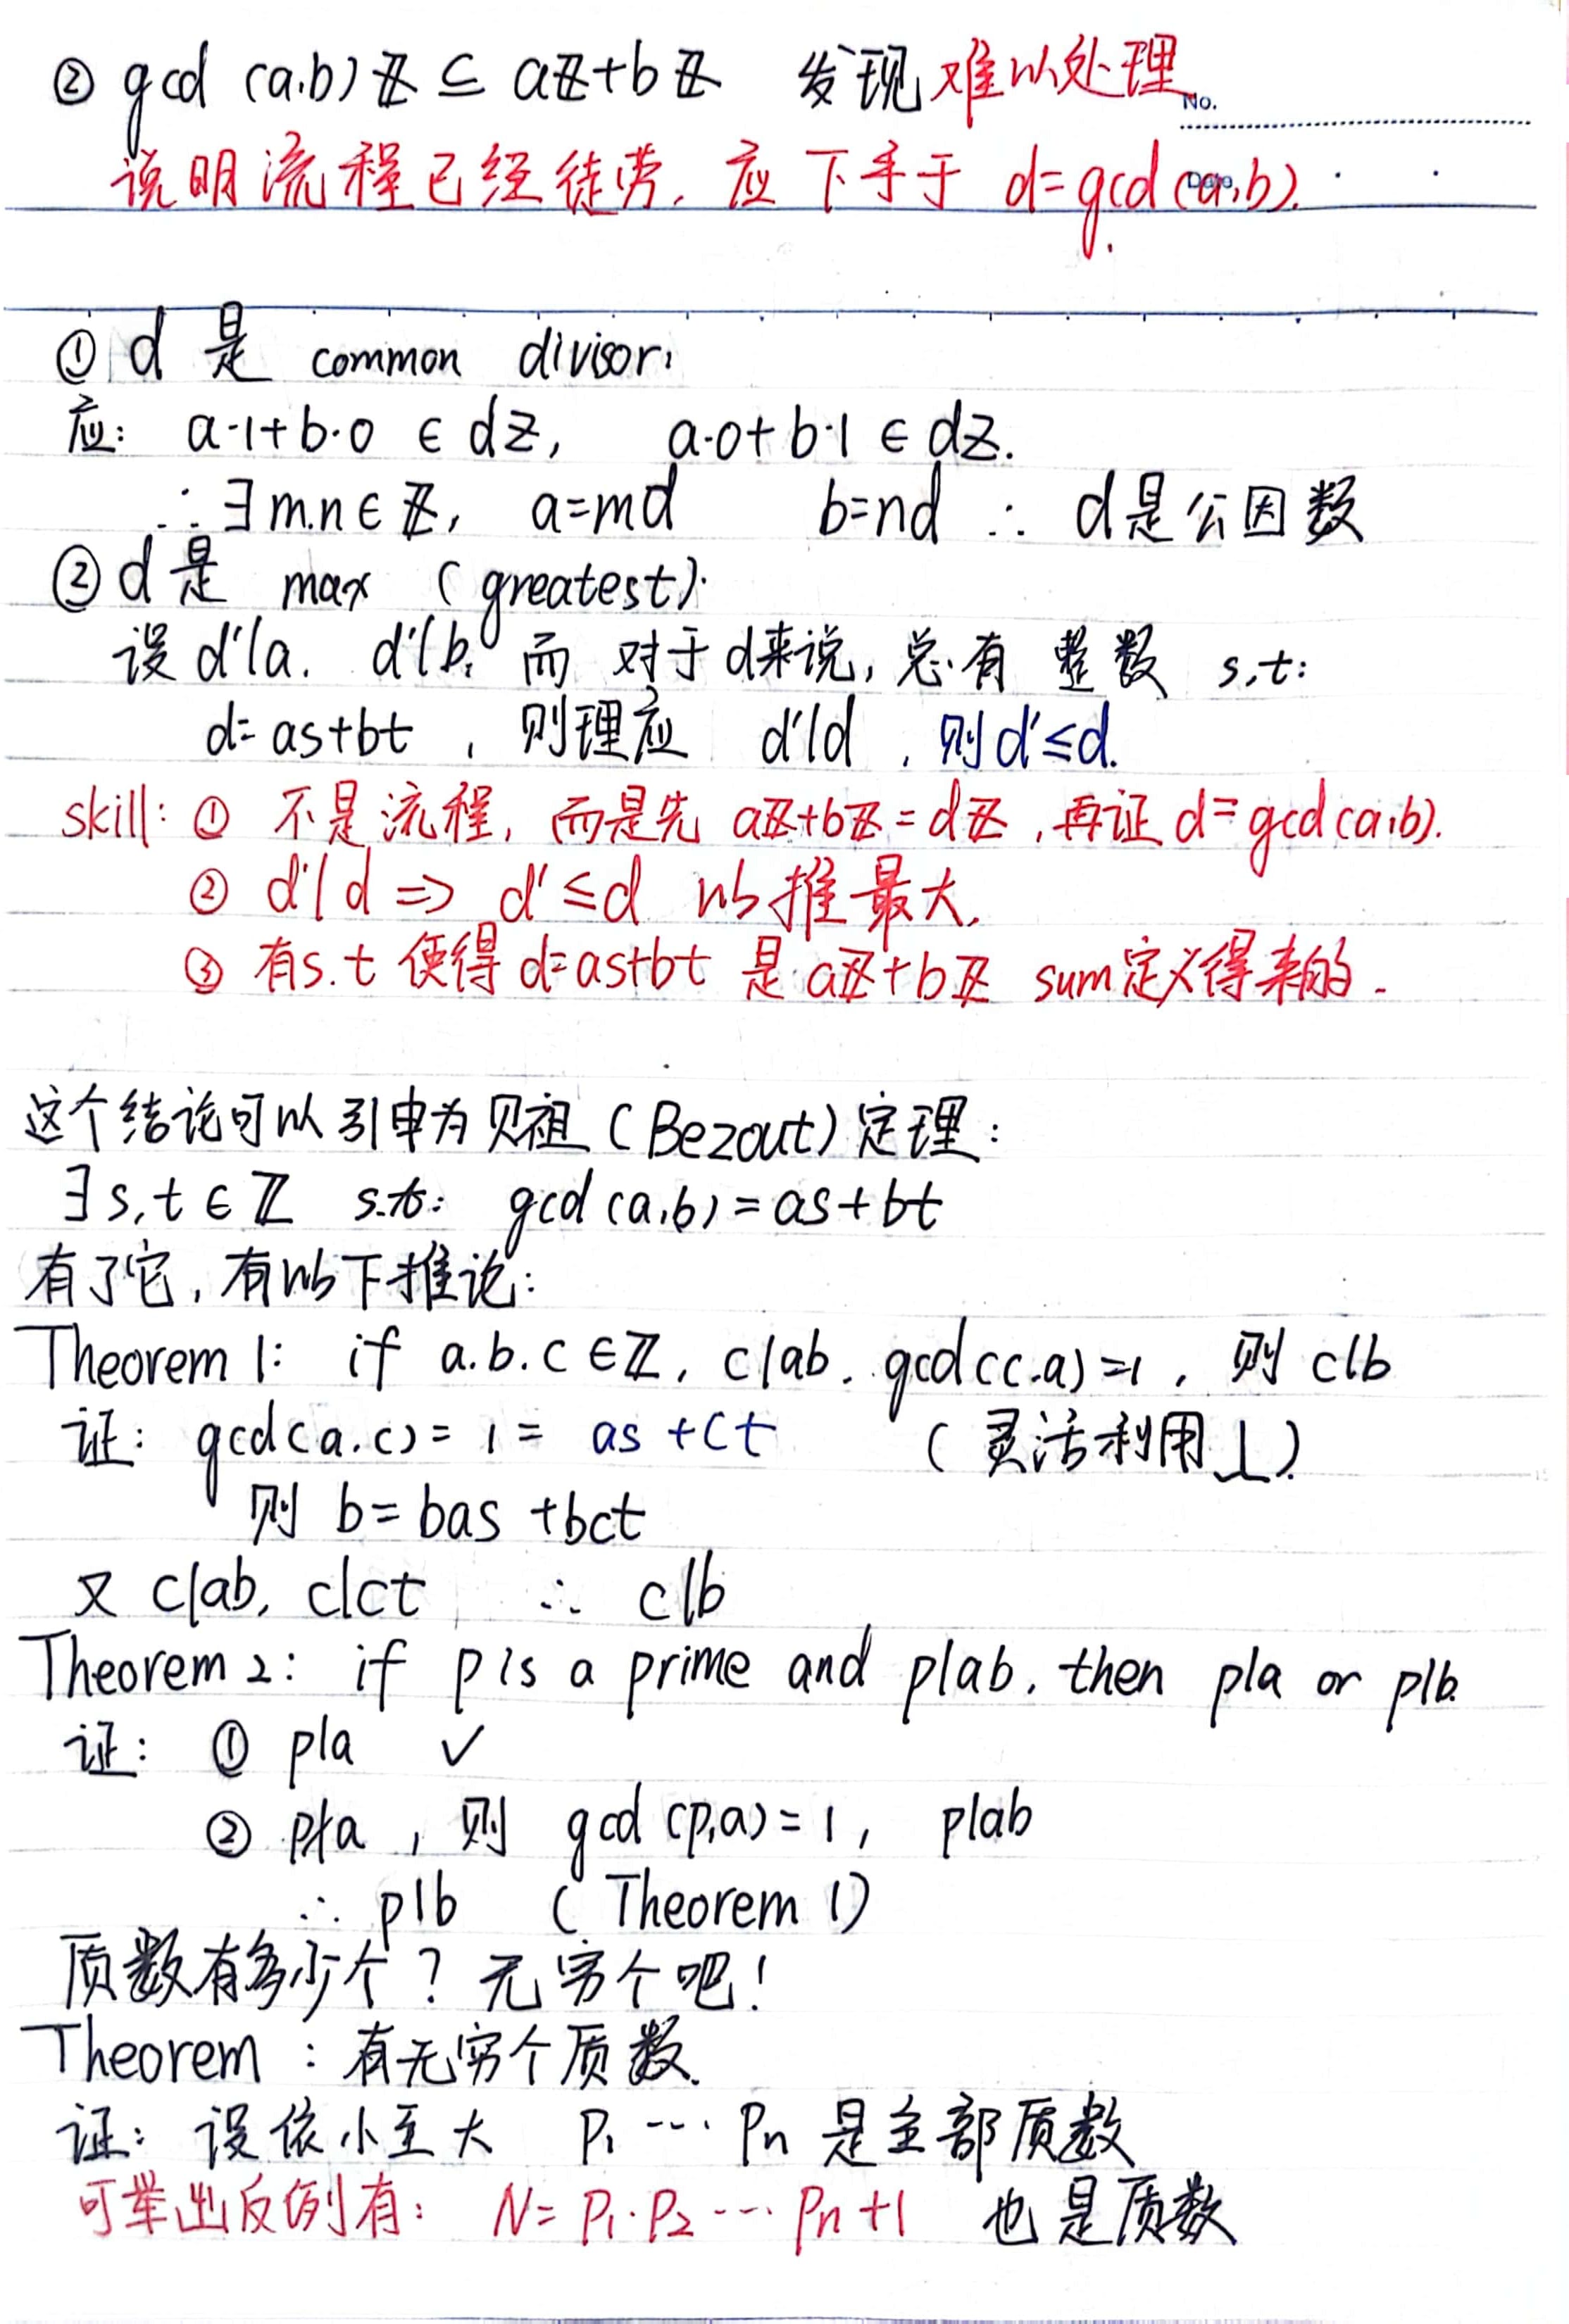 ② gcd (a,b)ℤ ⊆ aℤ+bℤ 发现难以处理
No.
说明流程已经徒劳, 应下手于 d=gcd(a,b).
Date
① d 是 common divisor:
应: a·1+b·0 ∈ dℤ, a·0+b·1 ∈ dℤ.
∴ ∃m.n∈ℤ, a=md b=nd ∴ d是公因数
② d是 max (greatest).
设d'|a. d'|b, 而 对于d来说, 总有 整数 s,t:
d=as+bt , 则理应 d'|d , 则d'≤d.
skill: ① 不是流程, 而是先 aℤ+bℤ=dℤ, 再证 d=gcd(a,b).
② d'|d ⇒ d'≤d 以推最大.
③ 有s.t 使得d=as+bt 是 aℤ+bℤ sum定义得来的.
这个结论可以引申为 贝祖 (Bezout) 定理:
∃s,t∈ℤ s.t: gcd(a,b)=as+bt
有了它, 有以下推论:
Theorem 1: if a.b.c∈ℤ, c|ab. gcd(c.a)=1 , 则 c|b
证: gcd(a.c)= 1 = as +ct (灵活利用1)
则 b=bas +bct
又 c|ab, c|ct ∴ c|b
Theorem 2: if p is a prime and p|ab, then p|a or p|b.
证: ① p|a ✓
② p∤a , 则 gcd(p,a)=1, p|ab
∴ p|b (Theorem 1)
质数有多少个? 无穷个吧!
Theorem : 有无穷个质数.
证: 设依小至大 p₁ ⋯ pₙ 是全部质数
可举出反例有: N= p₁·p₂ ⋯ pₙ+1 也是质数